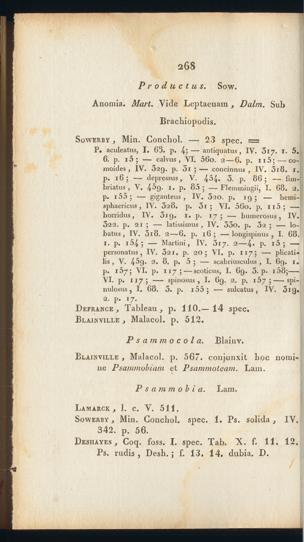 268
Productus. Sow.
Anomia. Mart. Vide Leptaenam, Dalm. Sub
Brachiopodis.
Sowerby, Min. Conchol. — 23 spec. =
P. aculeatus, I. 68. p. 4; — antiquatus, IV. 317. 1. 5.
6. p. 15; — calvus, VI. 560. 2—6. p. 115; — co-
moides, IV. 329. p. 31; — concinnus, IV. 318. 1.
p. 16; — depressus, V. 454. 3. p. 86; — fim-
briatus, V. 459. 1. p. 85; — Flemmingii, I. 68. 2.
p. 155; — giganteus, IV. 320. p. 19; — hemi-
sphaericus, IV. 328. p. 31; VI. 560. p. 115; —
horridus, IV. 319. 1. p. 17; — humerosus, IV.
322. p. 21; — latissimus, IV. 330. p. 32; — lo-
batus, IV. 318. 2—6. p. 16; — longispinus, I. 68.
1. p. 154; — Martini, IV. 317. 2—4. p. 15; —
personatus, IV. 321. p. 20; VI. p. 117; — plicati-
lis, V. 459. 2. 8. p. 5; — scabriusculus, I. 69. 1.
p. 157; VI. p. 117; — scoticus, I. 69. 3. p. 158; —
VI. p. 117; — spinosus, I. 69. 2. p. 157; — spi-
nulosus, I. 68. 3. p. 155; — sulcatus, IV. 319.
2. p. 17.
Defrance, Tableau, p. 110. — 14 spec.
Blainville, Malacol. p. 512.
Psammocola. Blainv.
Blainville, Malacol. p. 567. conjunxit hoc nomi-
ne Psammobiam et Psammoteam. Lam.
Psammobia. Lam.
Lamarck, l. c. V. 511.
Sowerby, Min. Conchol. spec. 1. Ps. solida, IV.
342. p. 56.
Deshayes, Coq. foss. I. spec. Tab. X. f. 11. 12.
Ps. rudis, Desh.; f. 13. 14. dubia. D.